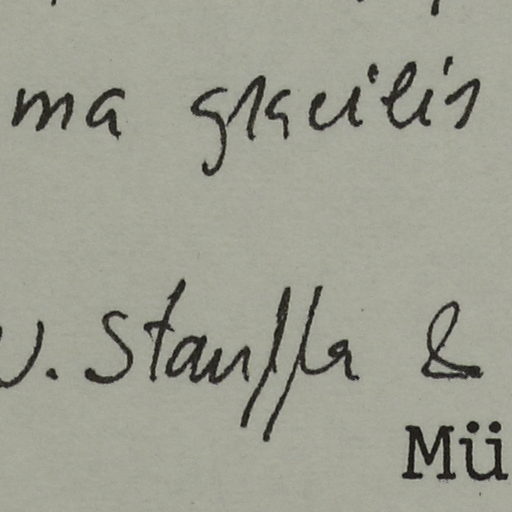 ma gracilis
v. Stauffer &
Mü